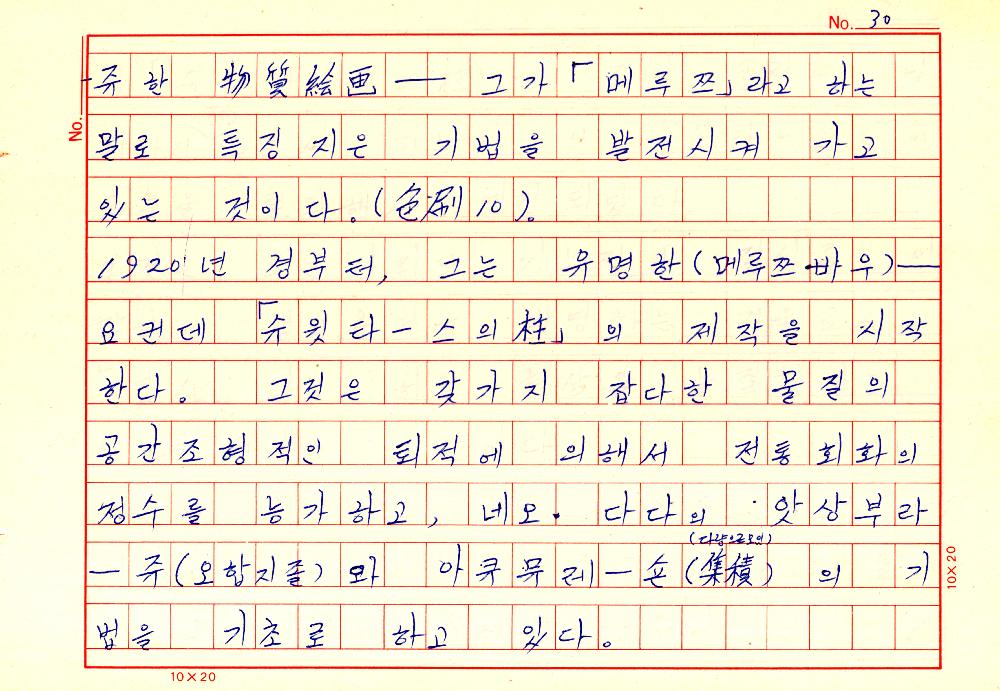 No. 30
No.
쥬한 物質絵画 — 그가 「메루쯔」라고 하는
말로 특징지은 기법을 발전시켜 가고
있는 것이다.(色刷10)。
1920년 경부터, 그는 유명한(메루쯔·바우)—
요컨데 「슈윗타—스의 柱」의 제작을 시작
한다. 그것은 갖가지 잡다한 물질의
공간조형적인 퇴적에 의해서 전통회화의
정수를 능가하고, 네오·다다의 앗상부라
(다량으로모임)
—쥬(오합지졸)와 아큐뮤레—숀(集積)의 기
법을 기초로 하고 있다.
10×20
10×20